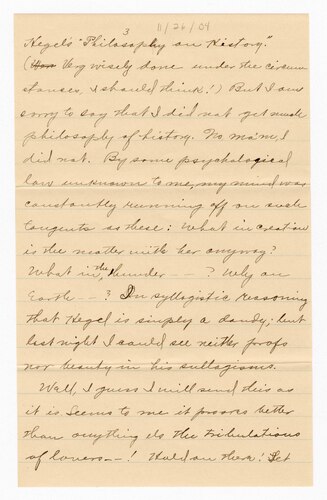 3
11/26/04
Hegel's "Philosophy on History."
(Very wisely done under the circum
stances, I should think!) But I am
sorry to say that I did not get much
philosophy of history. No ma'm, I
did not. By some psychological
law unknown to me, my mind was
constantly running off on such
tangents as these: What in creation
is the matter with her anyway?
What in the thunder - - - ? Why on
Earth - - - ? In syllogistic reasoning
that Hegel is simply a dandy; but
last night I could see neither profs
nor beauty in his sullogisms.
Well, I guess I will send this as
it is seems to me it proves better
than anything els the tribulations
of lovers - - ! Hold on there! Let